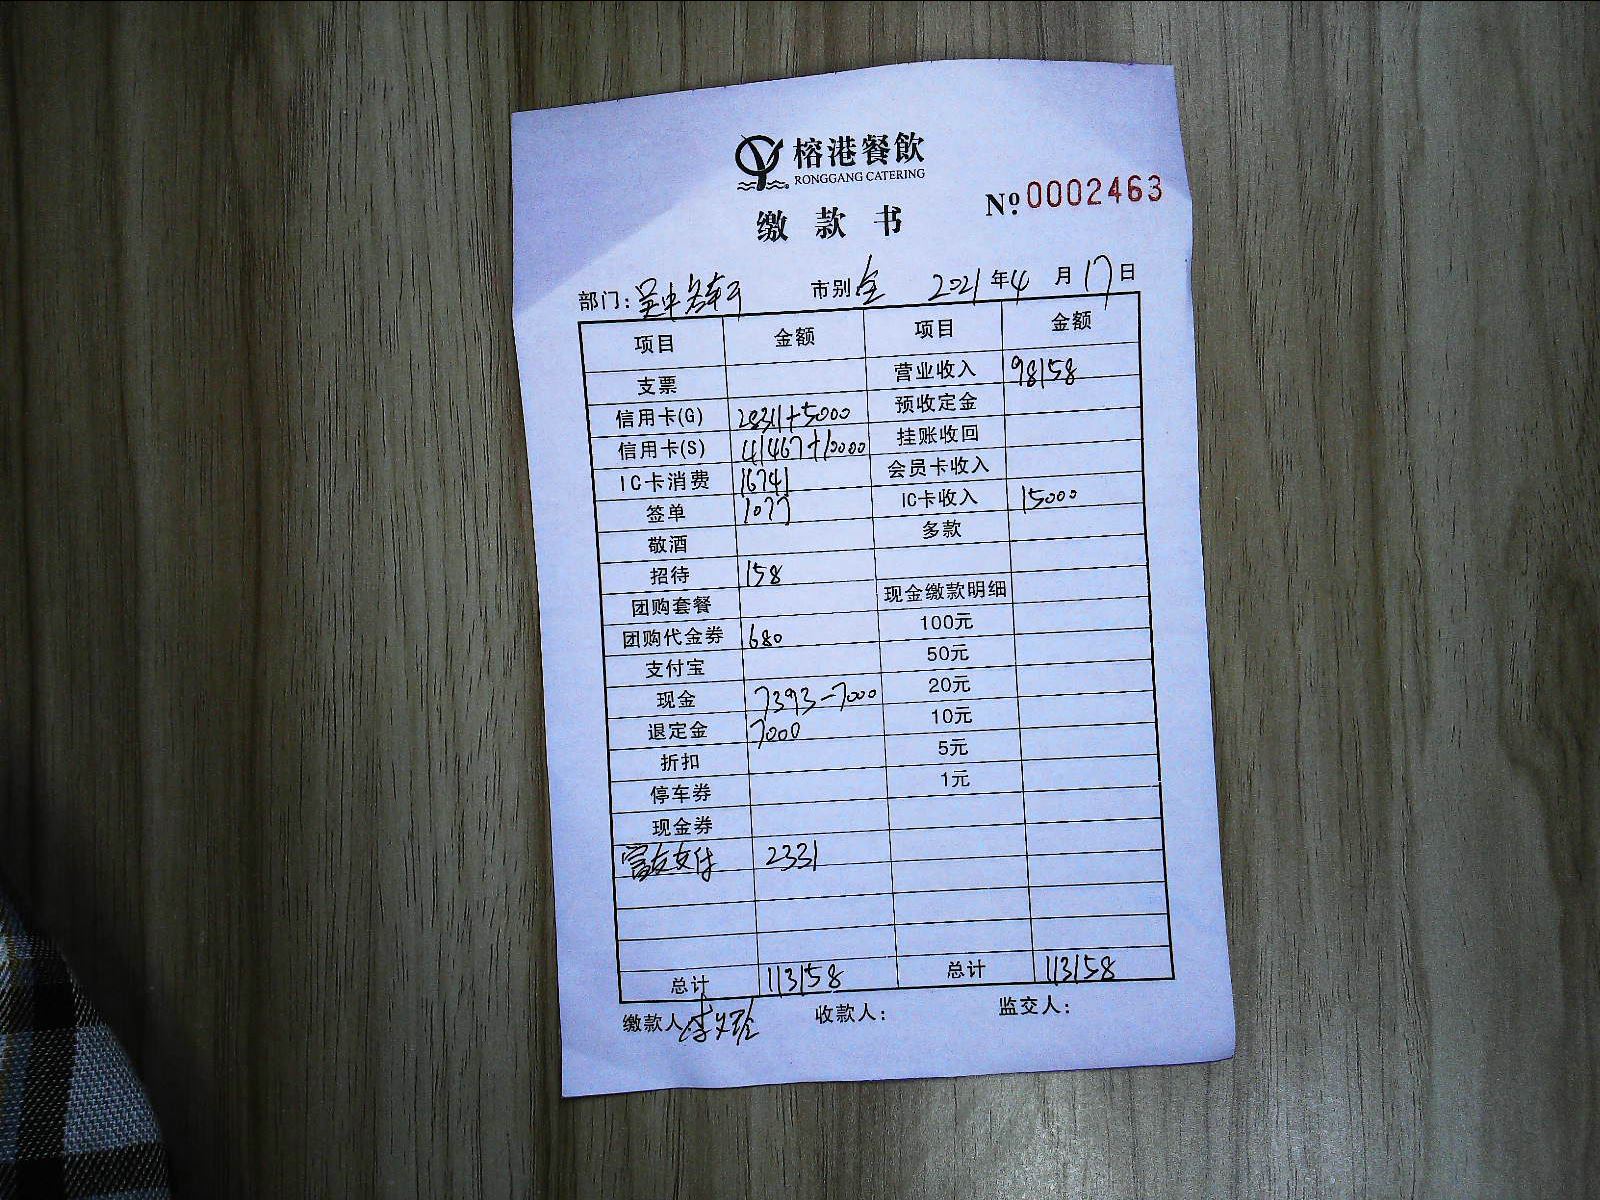 榕港餐飲
RONGGANG CATERING
缴款书
№ 0002463
部门: 吴中 市别 全 2021 年 4 月 17 日
项目 金额 项目 金额
支票 营业收入 98158
信用卡(G) 28311+5000 预收定金
信用卡(S) 41467+10000 挂账收回
IC卡消费 16741 会员卡收入
签单 1077 IC卡收入 15000
敬酒 多款
招待 158
团购套餐 现金缴款明细
团购代金券 680 100元
支付宝 50元
现金 7393-7000 20元
退定金 7000 10元
折扣 5元
停车券 1元
现金券
富友支付 2331
总计 113158 总计 113158
缴款人: 收款人: 监交人: